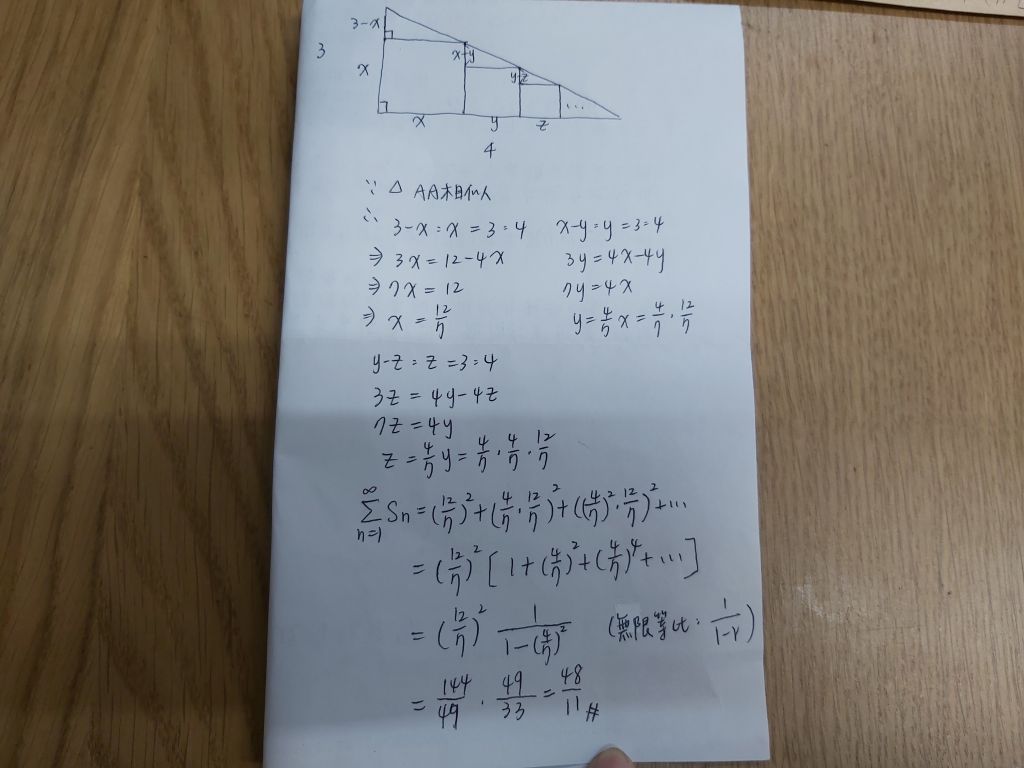 3-x
3
x
x-y
y-z
x
y
z
...
4
∵ △ AA相似
∴
3-x:x=3:4 x-y:y=3:4
⇒ 3x=12-4x 3y=4x-4y
⇒ 7x=12 7y=4x
⇒ x=12/7 y=4/7 x=4/7·12/7
y-z:z=3:4
3z=4y-4z
7z=4y
z=4/7 y=4/7·4/7·12/7
∞∑n=1 Sn=(12/7)²+(4/7·12/7)²+((4/7)²·12/7)²+...
=(12/7)²[1+(4/7)²+(4/7)⁴+...]
=(12/7)² 1/(1-(4/7)²) (無限等比:1/(1-r))
=144/49·49/33=48/11 #